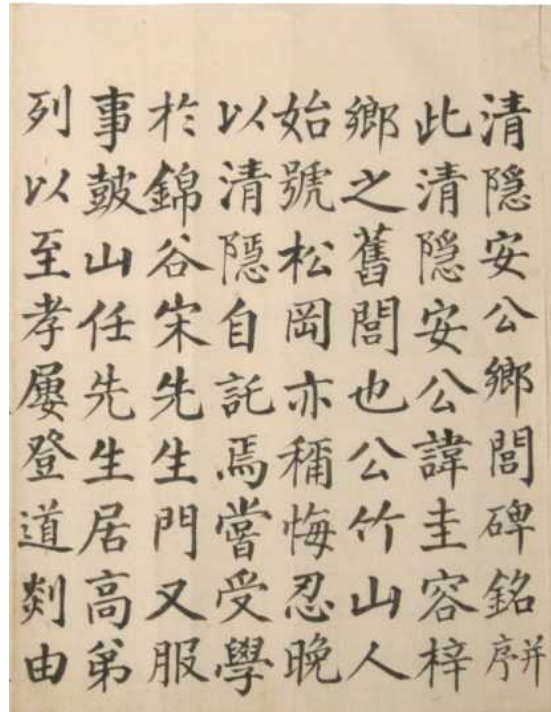 清隱安公鄉閭碑銘并序
此清隱安公諱圭容梓
鄉之舊閭也公竹山人
始號松岡亦稱悔忍晚
以清隱自託焉嘗受學
於錦谷宋先生門又服
事鼓山任先生居高弟
列以至孝屢登道剡由